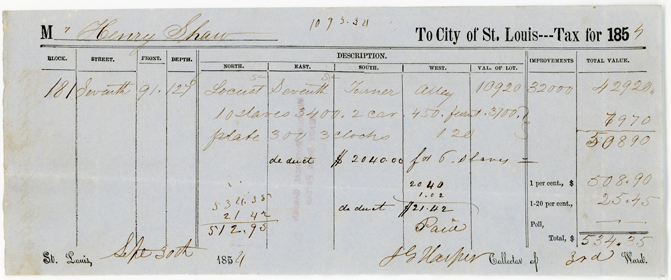 1073.311
Mr Henry Shaw To City of St. Louis---Tax for 1854
DESCRIPTION.
BLOCK. STREET. FRONT. DEPTH. NORTH. EAST. SOUTH. WEST. VAL. OF LOT. IMPROVEMENTS TOTAL VALUE.
181 Seventh 91. 127 Locust Seventh Turner Alley 10920 32000 42920
10 slaves 3400. 2 car. 450. furnt. 3700. 7970
plate 300 3 clocks 120 50890
deduct $ 2040.00 for 6 slaves =
2040 1 per cent., $ 508.90
1.02
534.35 deduct $21.42 1-20 per cent. 25.45
21 42
512.93 Paid Poll,
Total, $ 534.35
St. Louis, Sept 30th 1854 J G Harper Collector of 3rd Ward.